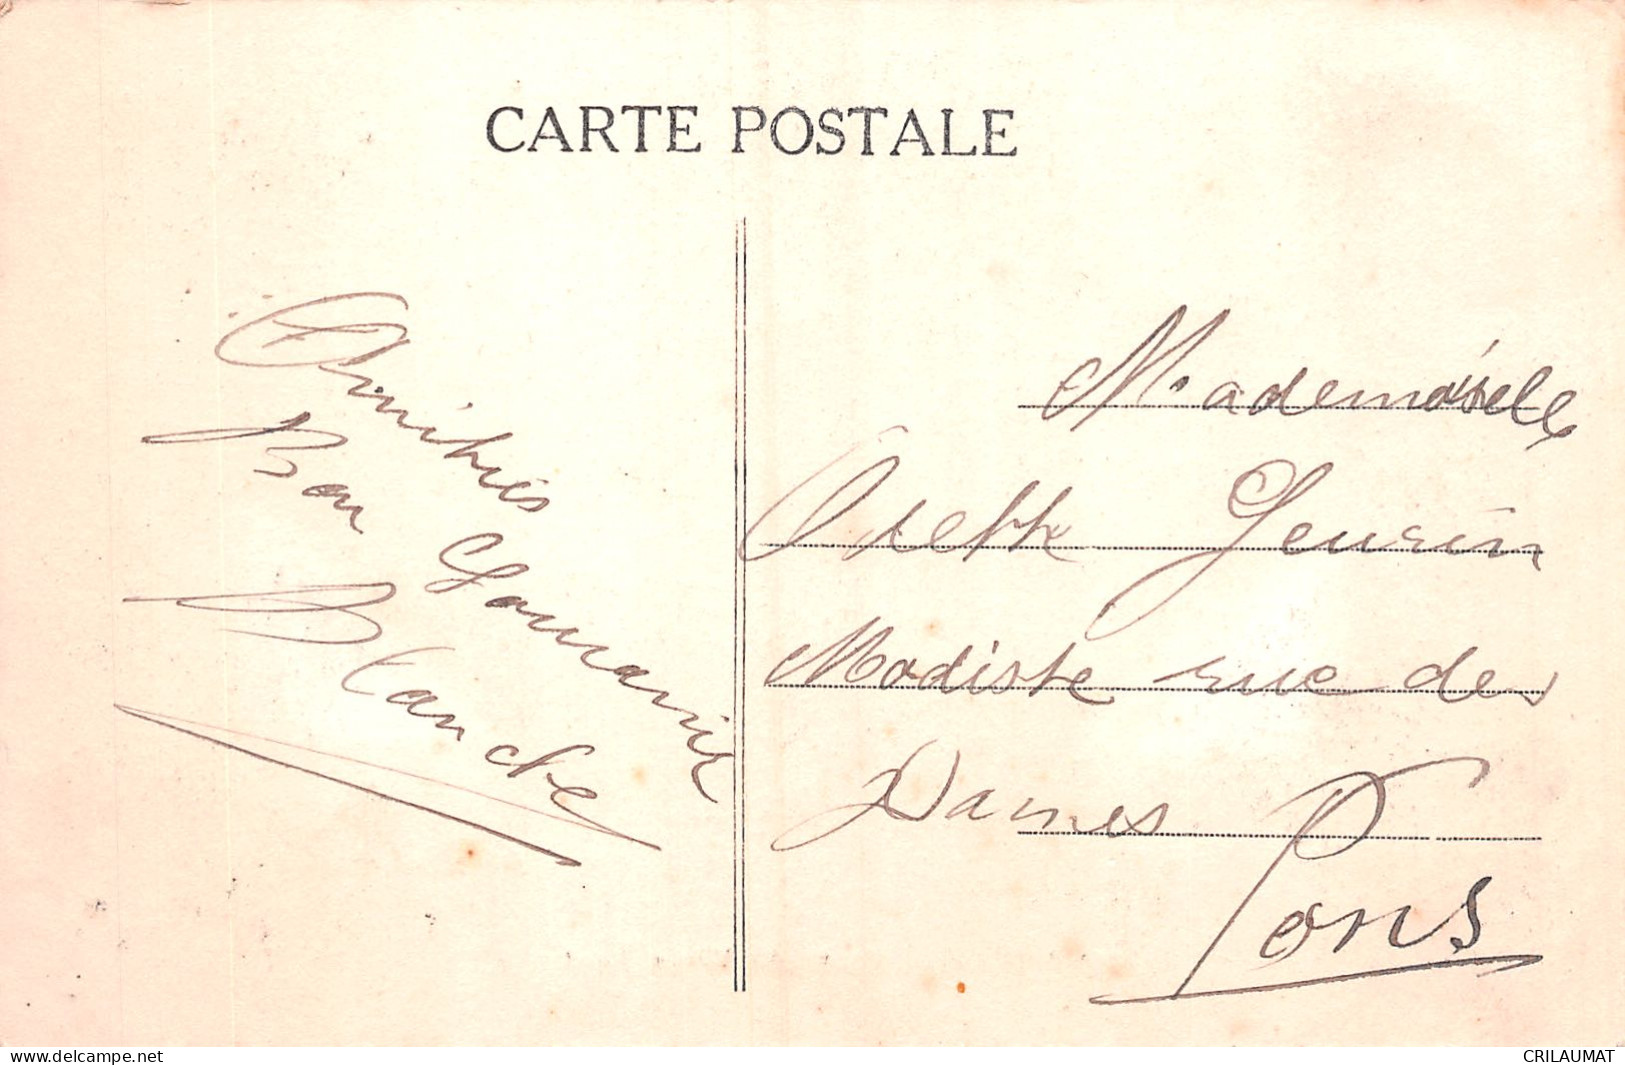 CARTE POSTALE
Amitiés
Bon
Blanche
Mademoiselle
Odette Geurin
Modiste rue des
Dames
Pons
www.delcampe.net
CRILAUMAT